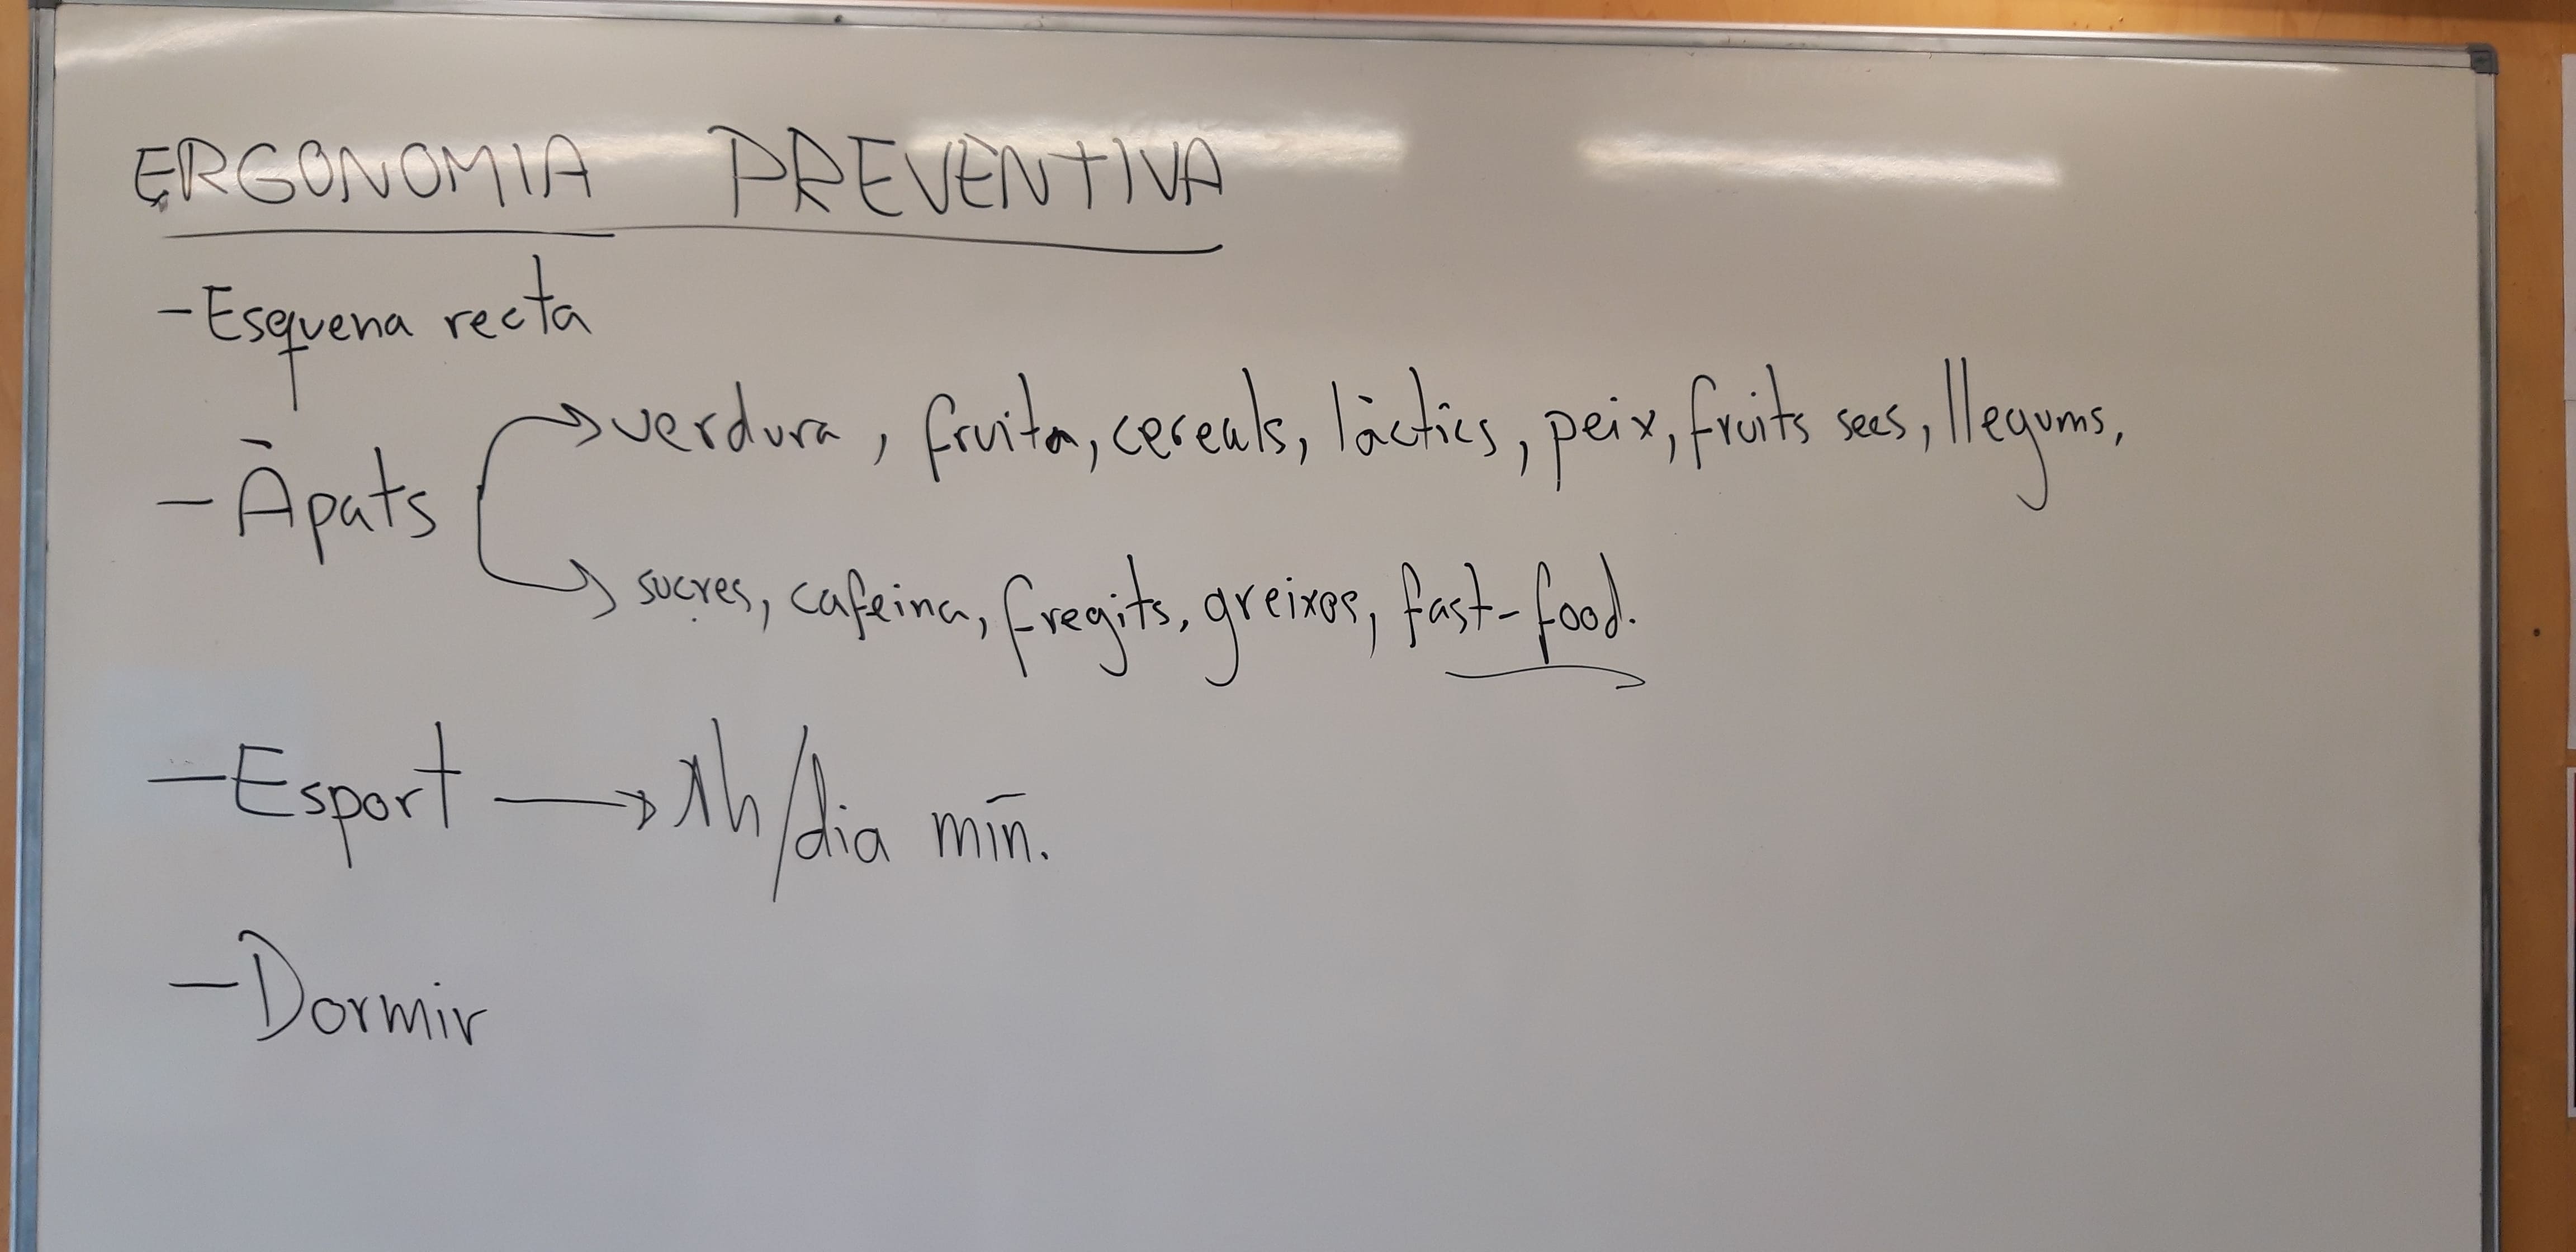 ERGONOMIA PREVENTIVA
- Esquena recta
- Àpats
→ verdura, fruita, cereals, làctics, peix, fruits secs, llegums,
→ sucres, cafeina, fregits, greixos, fast-food.
- Esport → 1h/dia mín.
- Dormir